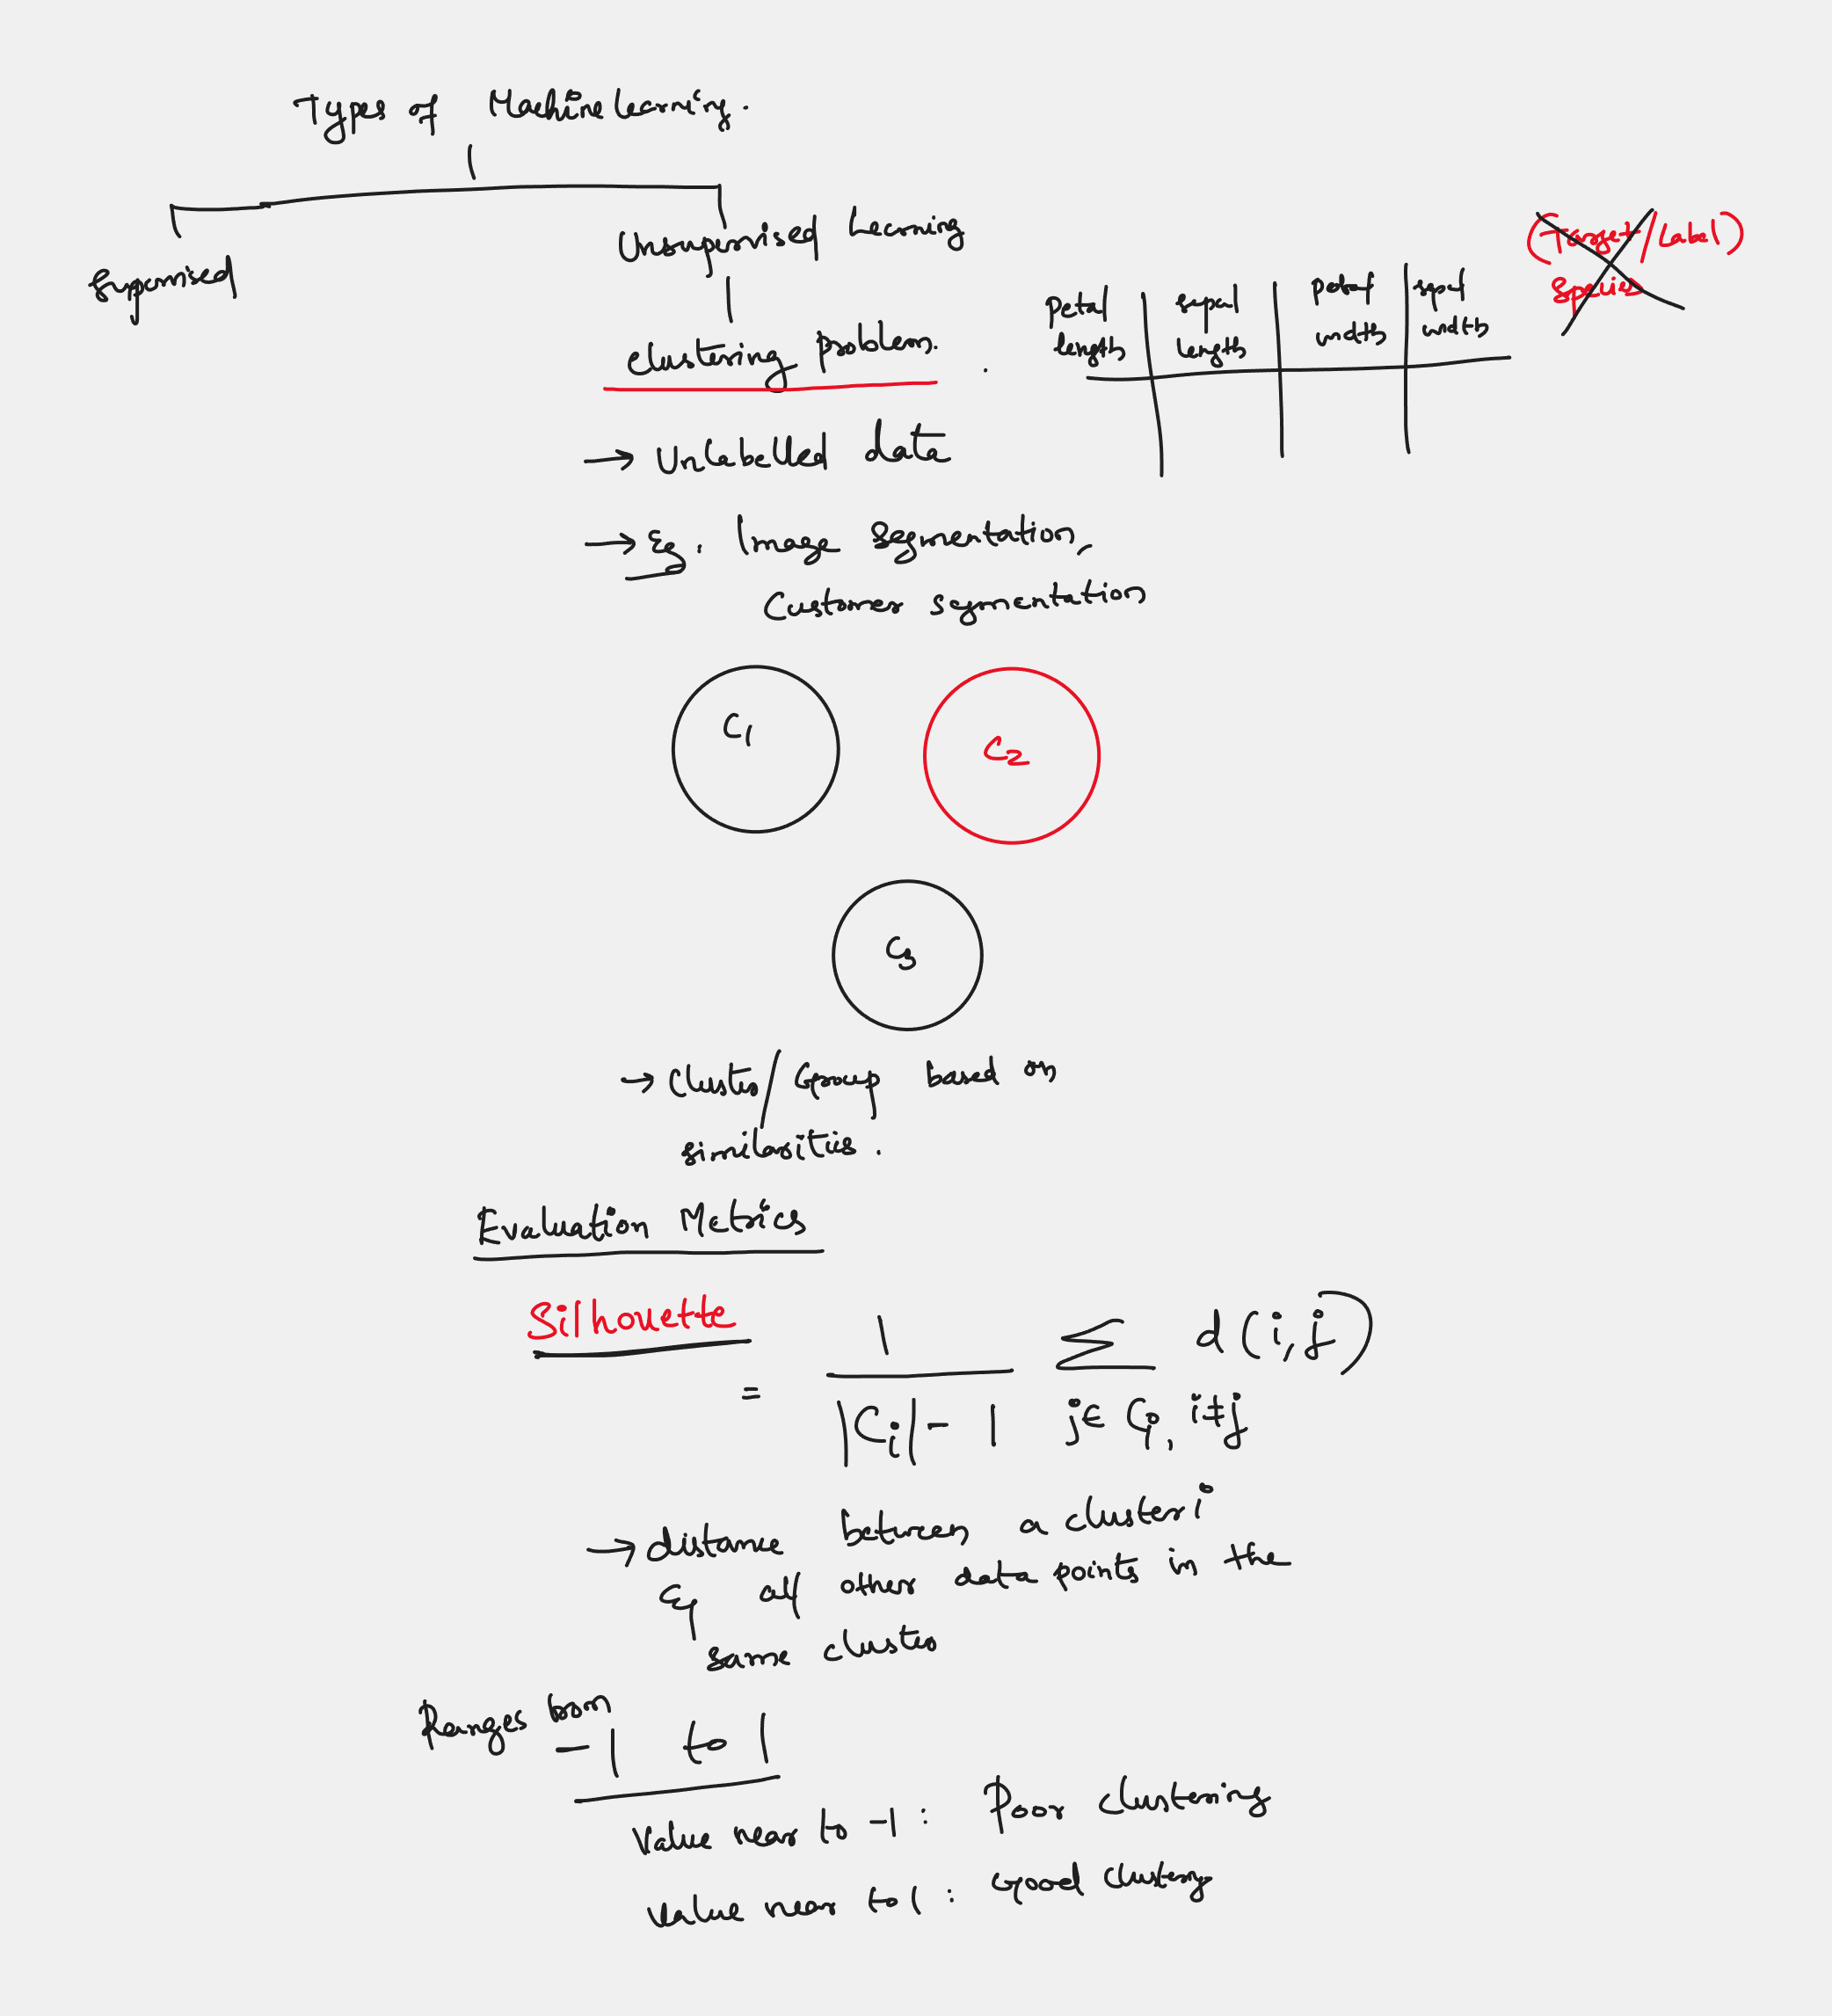 Types of Machine Learning.
Supervised
Unsupervised Learning
clustering problem.
petal length
sepal length
petal width
sepal width
(Target/Label)
Species
→ Unlabelled data
→ Eg: Image Segmentation,
Customer segmentation
C1
C2
C3
→ Cluster/Group based on
similarities.
Evaluation Metrics
Silhouette
= 1 / |Ci| - 1 ∑ j∈Ci, i≠j d(i,j)
→ distance between a cluster i
& all other data points in the
same cluster
Ranges from
-1 to 1
Value near to -1: Poor clustering
Value near to 1: Good clustering